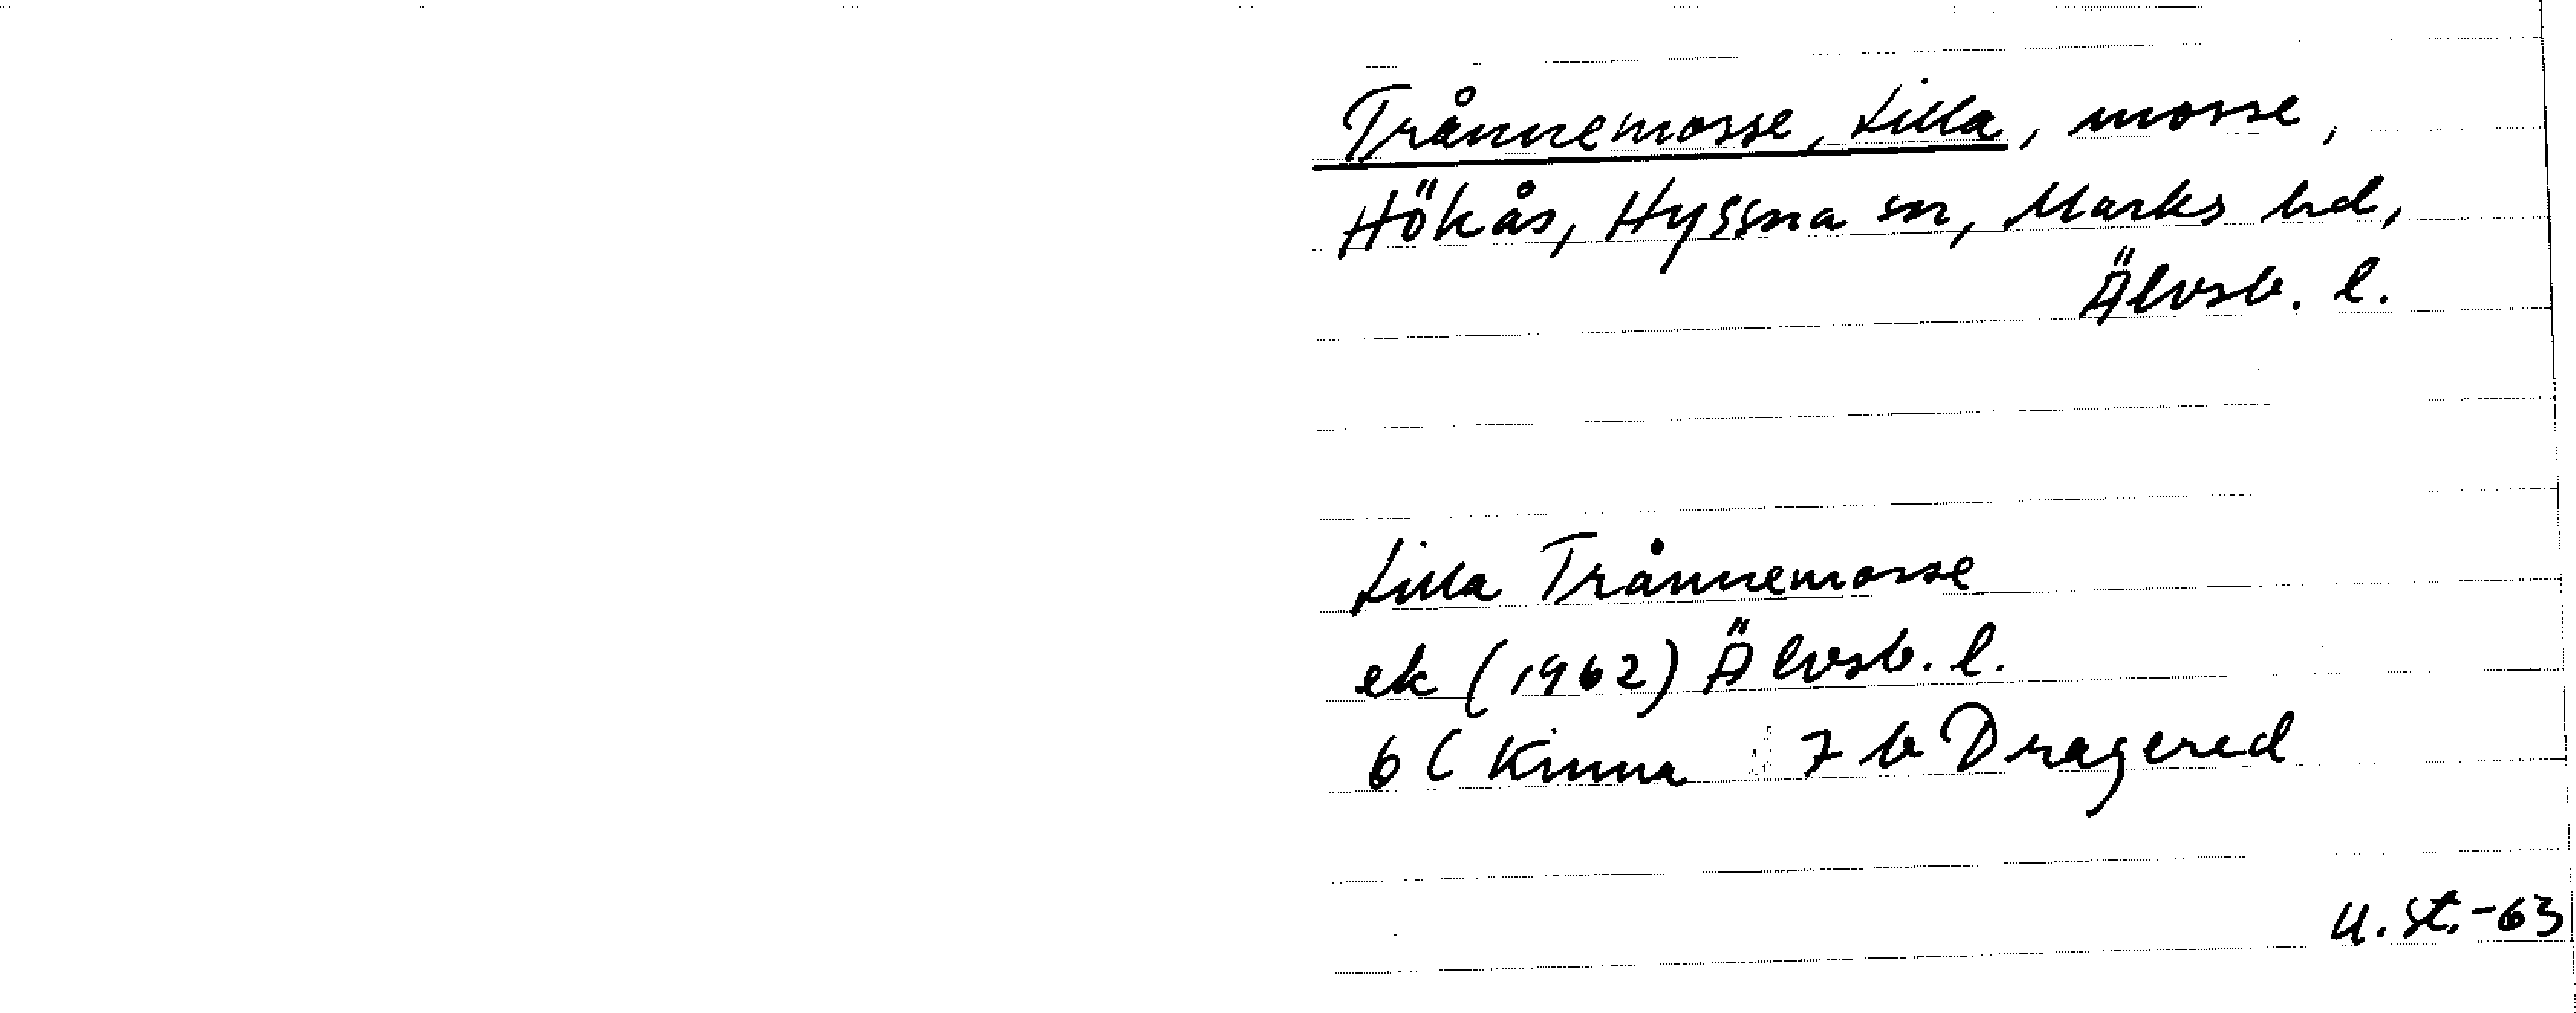 Trånnemosse, Lilla, mosse,
Hökås, Hyssna sn, Marks hd,
Älvsb. l.
Lilla Trånnemosse
ek (1962) Älvsb. l.
6 C Kinna 7 b Dragered
U. St. -63